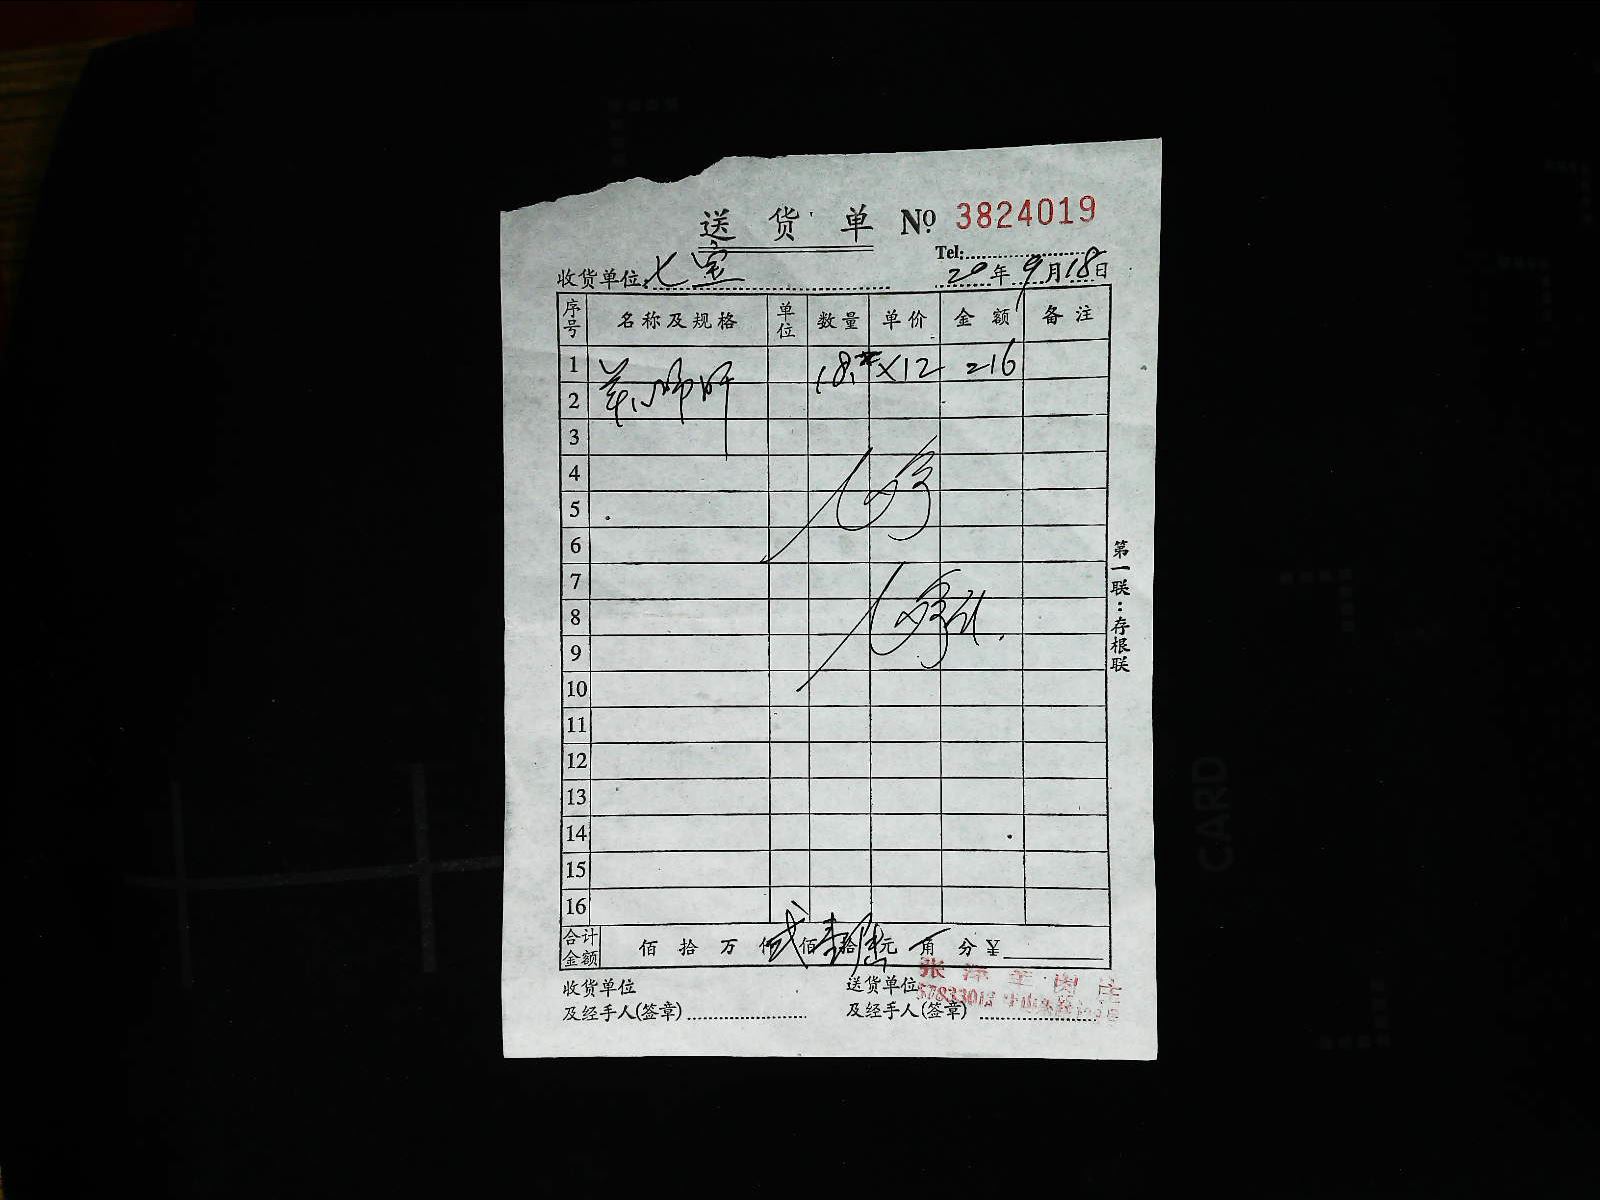 送 货 单 № 3824019
Tel:
收货单位: 七宝 20年9月18日
序号 名称及规格 单位 数量 单价 金额 备注
1 18 ×12 216
2
3
4
5
6
7
8
9
10
11
12
13
14
15
16
第一联:存根联
合计金额 佰 拾 万 仟 贰 佰 壹 拾 陆 元 角 分 ¥
收货单位 送货单位
及经手人(签章) 及经手人(签章)
张泽羊肉庄
CARD